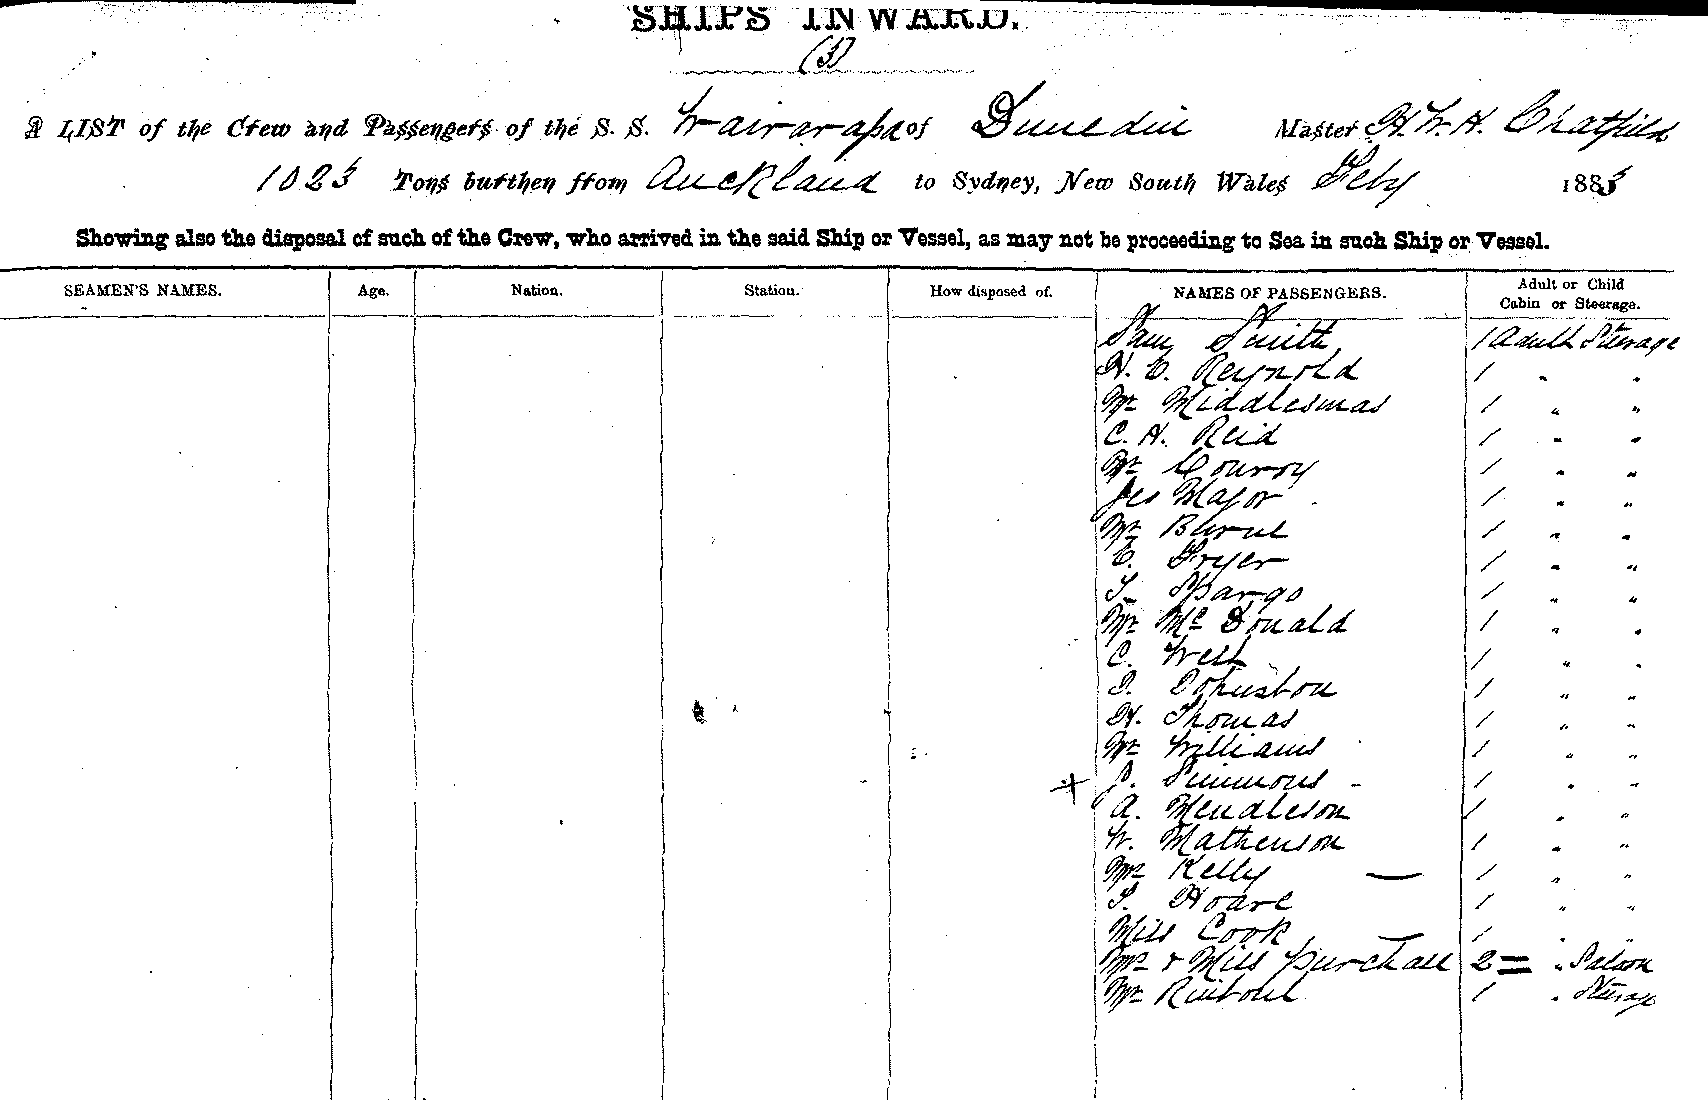 SHIPS INWARD.
(3)
A LIST of the Crew and Passengers of the S. S. Wairarapa of Dunedin Master H. W. H. Chatfield
1023 Tons burthen from Auckland to Sydney, New South Wales Feby 1883
Showing also the disposal of such of the Crew, who arrived in the said Ship or Vessel, as may not be proceeding to Sea in such Ship or Vessel.
SEAMEN'S NAMES. Age. Nation. Station. How disposed of. NAMES OF PASSENGERS. Adult or Child
Cabin or Steerage.
Sam Smith 1 Adult Steerage
H. E. Reynold 1 " "
Mr Middlesmas 1 " "
C. H. Reid 1 " "
Mr Conroy 1 " "
Major 1 " "
Mr Burne 1 " "
E. Fryer 1 " "
Spargo 1 " "
Mr McDonald 1 " "
C. West 1 " "
Johnston 1 " "
H. Thomas 1 " "
Mr Williams 1 " "
J. Simmons - 1 " "
A. Mendleson 1 " "
W. Mathewson 1 " "
Mrs Kelly — 1 " "
Hoare 1 " "
Miss Cook — 1 " "
Mrs & Miss Purchase 2 = " Saloon
Mr 1 " Steerage